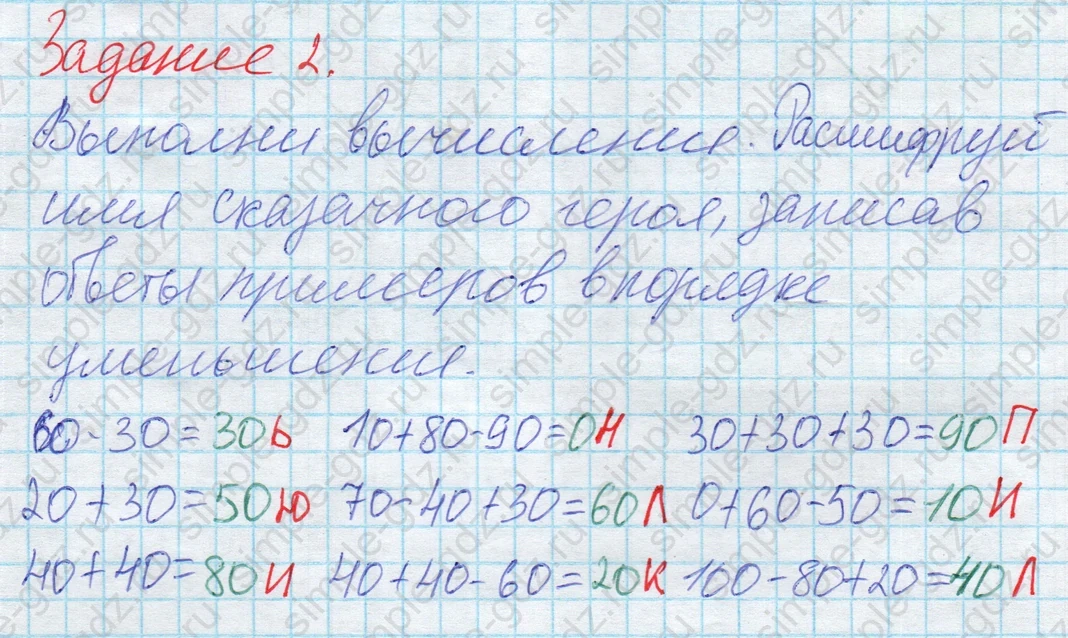 Задание 2.
Выполни вычисления. Расшифруй
имя сказочного героя, записав
ответы примеров в порядке
уменьшения.
60-30=30Ь 10+80-90=0Н 30+30+30=90П
20+30=50Ю 70-40+30=60Л 0+60-50=10И
40+40=80И 40+40-60=20К 100-80+20=40Л
simple-gdz.ru